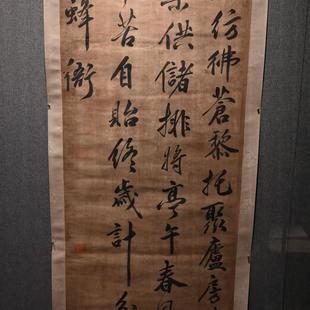 彷彿蒼黎托聚廬房
供儲排將亭午春
苦自貽終歲計
蜂衙